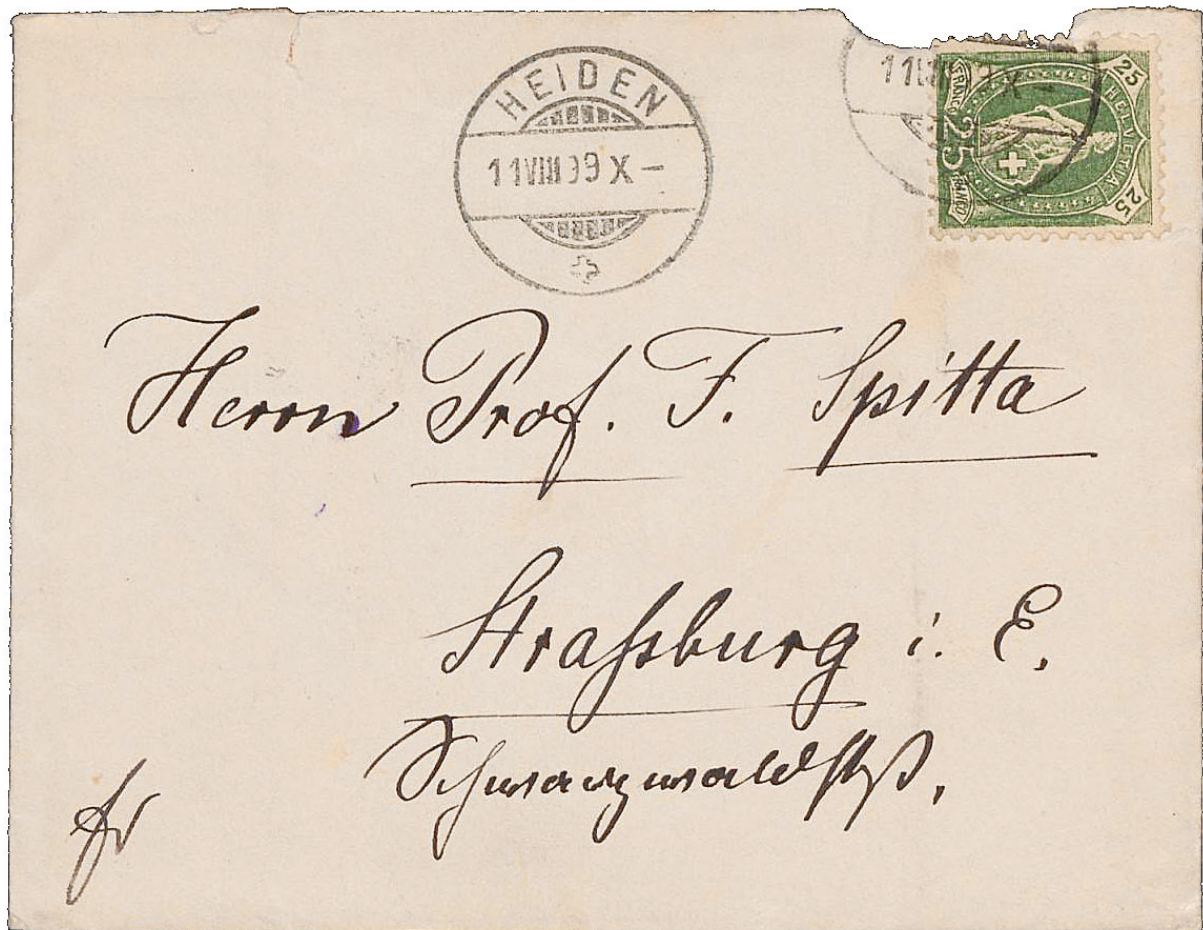 HEIDEN
11 VIII 99 X –
25 HELVETIA 25
FRANCO 25 FRANCO
Herrn Prof. F. Spitta
Straßburg i. E.
Schwarzwaldstr.
fr